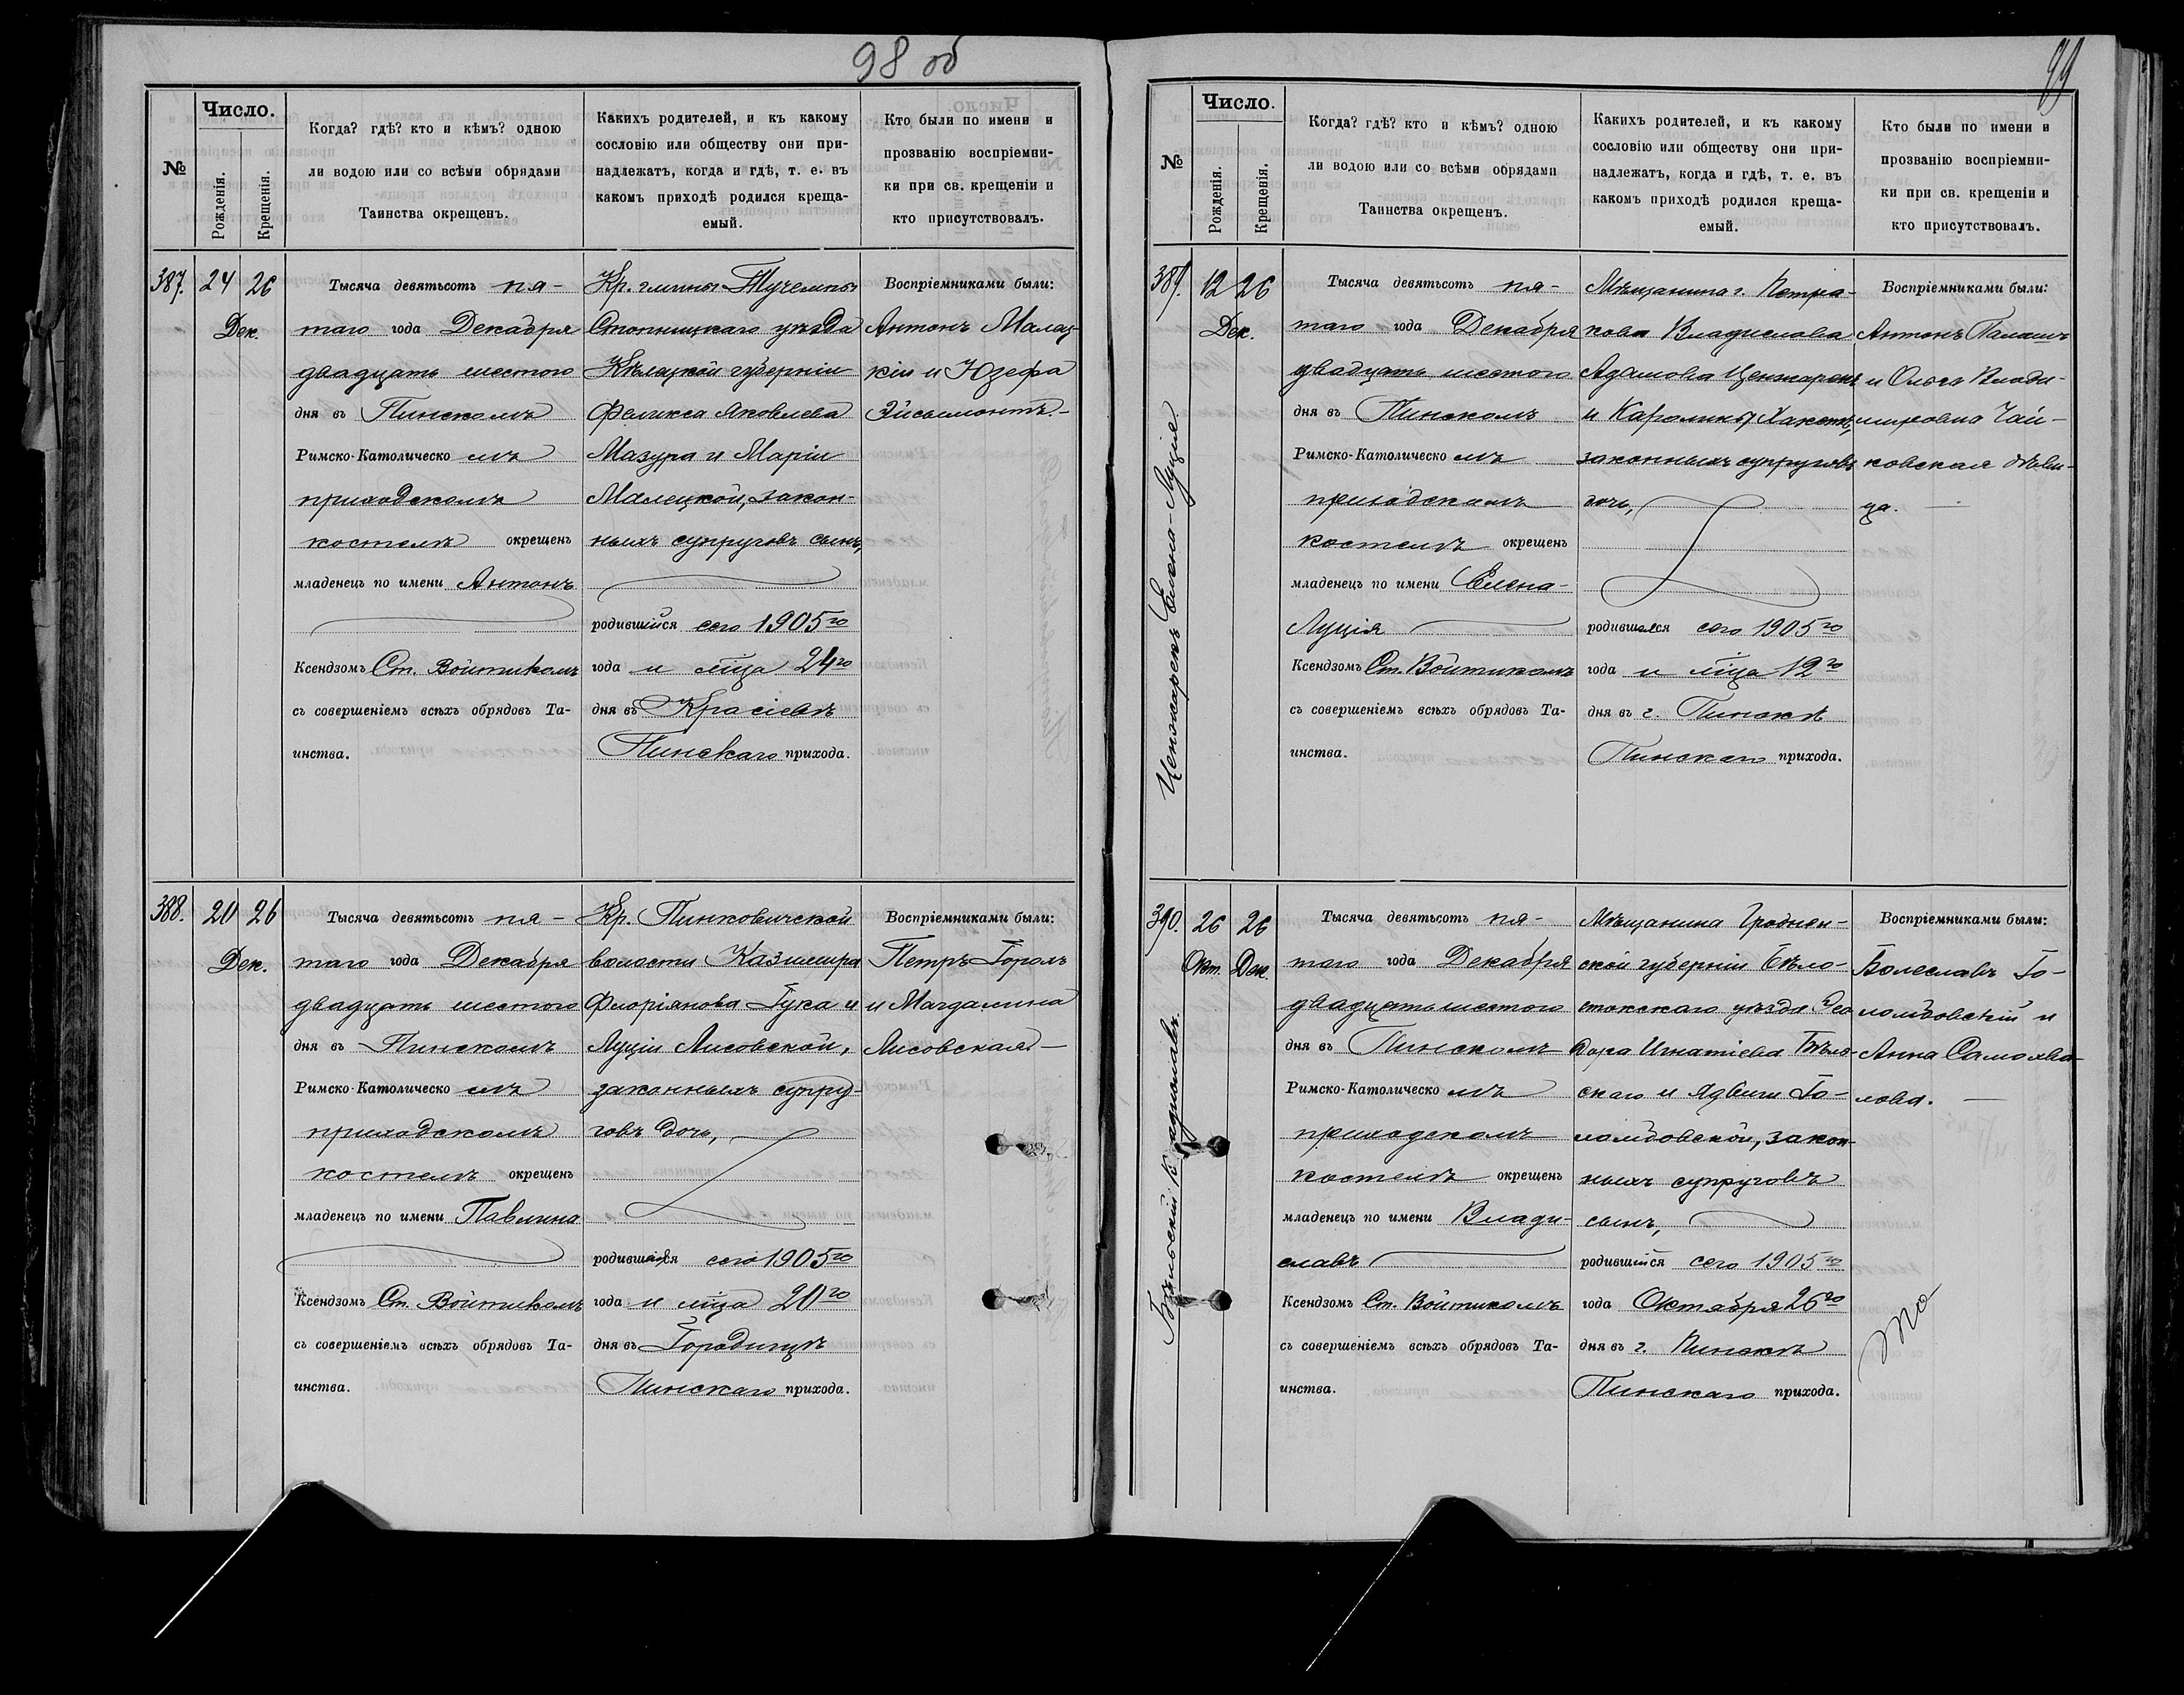 98 об
№
Число.
Рожденія.
Крещенія.
Когда? гдѣ? кто и кѣмъ? одною
ли водою или со всѣми обрядами
Таинства окрещенъ.
Какихъ родителей, и къ какому
сословію или обществу они при-
надлежатъ, когда и гдѣ, т. е. въ
какомъ приходѣ родился креща-
емый.
Кто были по имени и
прозванію воспріемни-
ки при св. крещеніи и
кто присутствовалъ.
387. 24 26
Дек.
Тысяча девятьсотъ пя-
таго года Декабря
двадцать шестого
дня въ Пинскомъ
Римско-Католическо мъ
приходскомъ
костелѣ окрещенъ
младенецъ по имени Антонъ
Ксендзомъ Ст. Войтикомъ
съ совершеніемъ всѣхъ обрядовъ Та-
инства.
Кр. гмины Тучемпы
Стопницкаго уѣзда
Кѣлецкой губерніи
Феликса Яковлева
Мазура и Маріи
Малецкой, закон-
ныхъ супруговъ сынъ,
родившійся сего 1905го
года и мѣца 24го
дня въ Красіевѣ
Пинскаго прихода.
Воспріемниками были:
Антонъ Малец-
кій и Юзефа
Эйсымонтъ.-
388. 20 26
Дек.
Тысяча девятьсотъ пя-
таго года Декабря
двадцать шестого
дня въ Пинскомъ
Римско-Католическо мъ
приходскомъ
костелѣ окрещенъ
младенецъ по имени Павлина
Ксендзомъ Ст. Войтикомъ
съ совершеніемъ всѣхъ обрядовъ Та-
инства.
Кр. Пинковичской
волости Казимира
Флоріянова Гука и
Луціи Лисовской,
законныхъ супру-
говъ дочь,
родившаяся сего 1905го
года и мѣца 20го
дня въ Городищѣ
Пинскаго прихода.
Воспріемниками были:
Петръ Горолъ
и Магдалина
Лисовская.-
99
№
Число.
Рожденія.
Крещенія.
Когда? гдѣ? кто и кѣмъ? одною
ли водою или со всѣми обрядами
Таинства окрещенъ.
Какихъ родителей, и къ какому
сословію или обществу они при-
надлежатъ, когда и гдѣ, т. е. въ
какомъ приходѣ родился креща-
емый.
Кто были по имени и
прозванію воспріемни-
ки при св. крещеніи и
кто присутствовалъ.
389. 12 26
Дек.
Ценжарекъ Елена-Луція.
Тысяча девятьсотъ пя-
таго года Декабря
двадцать шестого
дня въ Пинскомъ
Римско-Католическо мъ
приходскомъ
костелѣ окрещенъ
младенецъ по имени Елена-
Луція
Ксендзомъ Ст. Войтикомъ
съ совершеніемъ всѣхъ обрядовъ Та-
инства.
Мѣщанина г. Петра-
кова Владислава
Адамова Ценжарекъ
и Каролины
законныхъ супруговъ
дочь,
родившаяся сего 1905го
года и мѣца 12го
дня въ г. Пинскѣ
Пинскаго прихода.
Воспріемниками были:
Антонъ Палашъ
и Ольга Влади-
міровна Чай-
ковская дѣви-
ца.
390. 26 26
Окт. Дек.
Бѣльскій Владиславъ.
Тысяча девятьсотъ пя-
таго года Декабря
двадцать шестого
дня въ Пинскомъ
Римско-Католическо мъ
приходскомъ
костелѣ окрещенъ
младенецъ по имени Влади-
славъ
Ксендзомъ Ст. Войтикомъ
съ совершеніемъ всѣхъ обрядовъ Та-
инства.
Мѣщанина Гроднен-
ской губерніи Бѣло-
стокскаго уѣзда Ѳео
дора Игнатіева Бѣль-
скаго и Ядвиги Го-
ломбовской, закон-
ныхъ супруговъ
сынъ,
родившійся сего 1905го
года Октября 26го
дня въ г. Пинскѣ
Пинскаго прихода.
Воспріемниками были:
Болеславъ Го-
ломбовскій и
Анна Самохва-
лова.